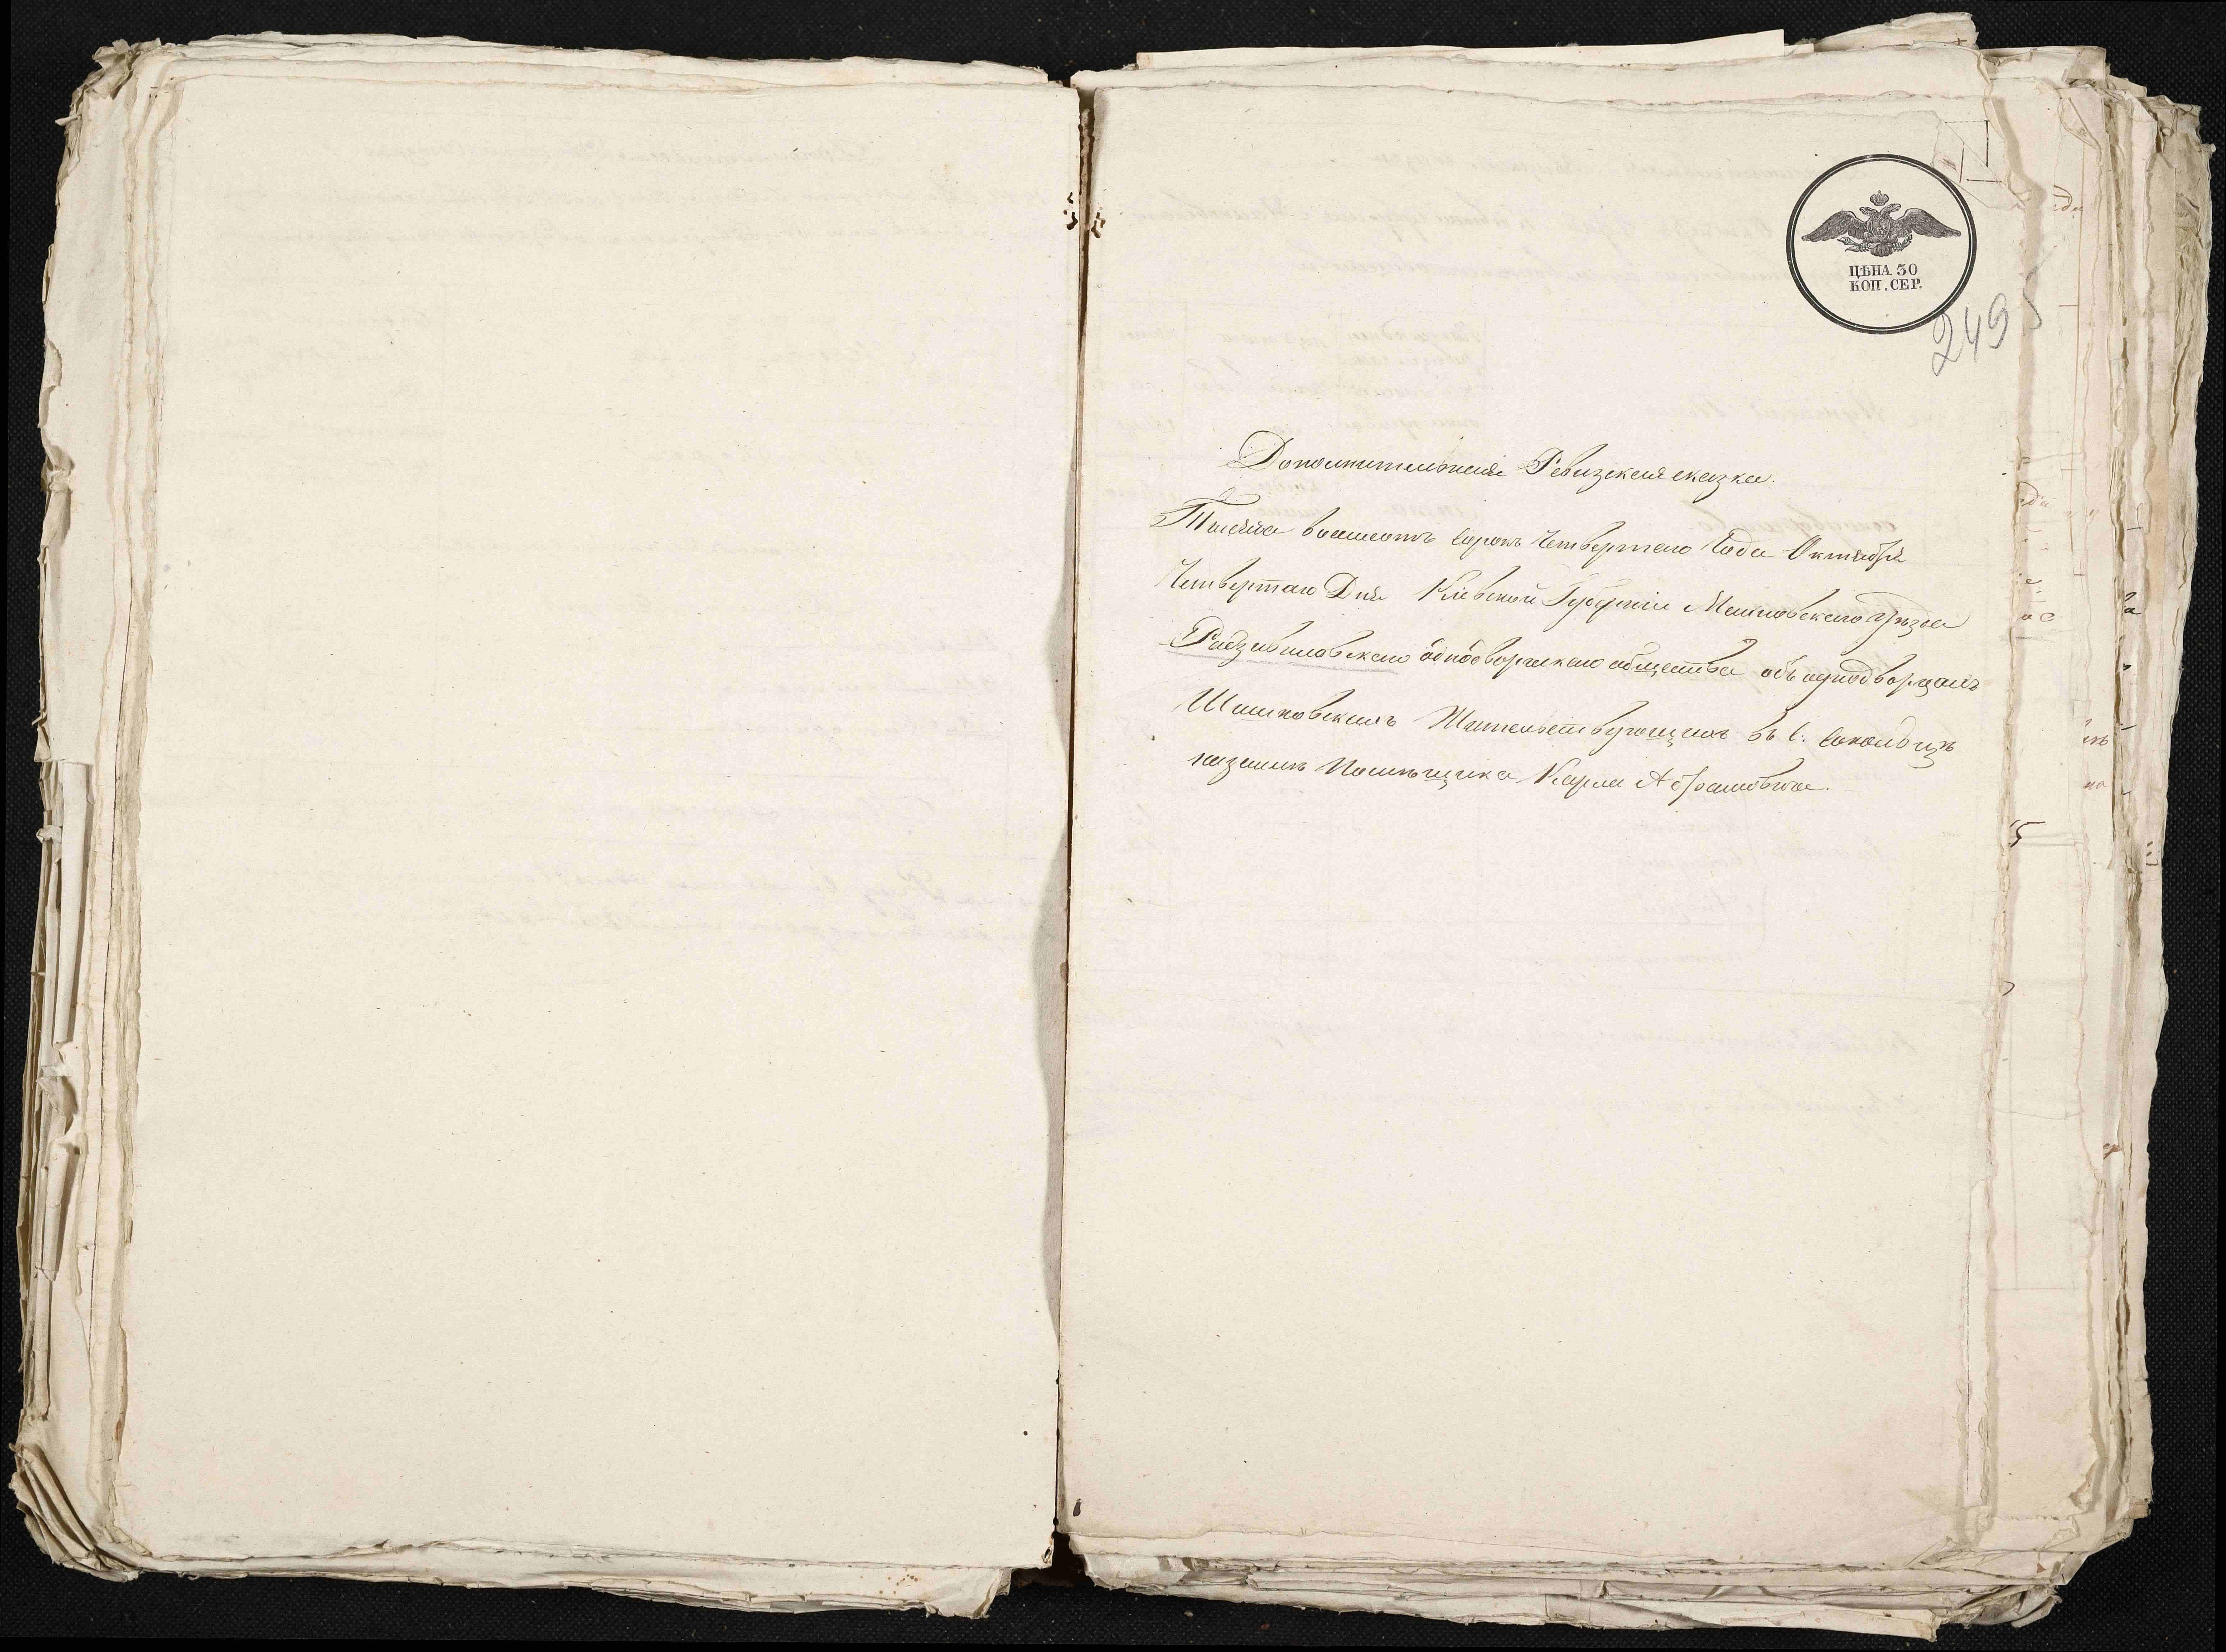 ЦѢНА 30
КОП. СЕР.
249
Дополнительная Ревизская сказка.
Тысяча восемсотъ сорокъ Четвертаго Года Октября
Четвертаго Дня Кіевской Губерніи Махновскаго уѣзда
Радзивиловскаго однодворческаго общества объ однодворцахъ
Жительствующихъ въ С.
Помѣщика Карла Абрамовича.